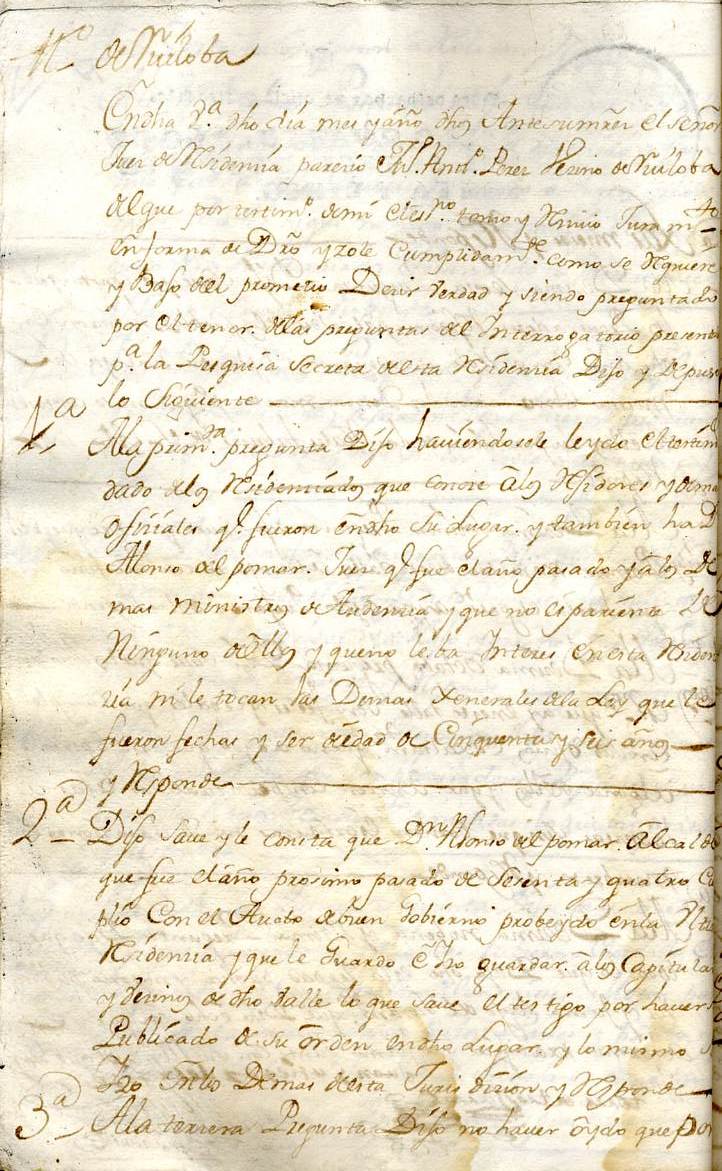 de Ruiloba
En dha dho dia mes y año dhos Ante su mrd el señor
Juez de Residenzia parezio Perez Vezino de Ruiloba
del que por testim.º de mi el es.no tomo y Rezivio Juram.to
en forma de Dro y zole Cumplidam.te como se Requiere
y Bajo del prometio Dezir Verdad y siendo preguntado
por el tenor. de las preguntas del Interrogatorio presenta
p.a la Pesquisa Secreta desta Residenzia Dijo y Depuso
lo Siguiente
1ª
A la prim.ra pregunta Dijo haviendosele leydo el testim
dado de los Residenziados que conoze a los Rejidores y demas
Ofiziales q.e fueron en dho su Lugar. y tambien ha D
Alonso del pomar. Juez q.e fue el año pasado y a los De
mas Ministros de Audienzia y que no es pariente de
Ninguno dellos y que no le ba Interes en esta Residen
zia ni le tocan las Demas Xenerales de la Ley que le
fueron fechas y ser de edad de Cinquenta y seis años
y Responde
2ª
Dijo Save y le consta que D.n Alonso del pomar. Alcalde
que fue el año prosimo pasado de Sesenta y quatro Cu
plio Con el Auto de buen Gobierno probeydo en la
Residenzia y que le Guardo e hizo guardar. a los Capitula
y Vezinos de dho Valle lo que save el testigo por haverse
Publicado de su orden en dho Lugar. y lo mismo se
Izo en los Demas desta Jurisdizion y Responde
3ª
A la terzera Pregunta Dijo no haver oydo que Don